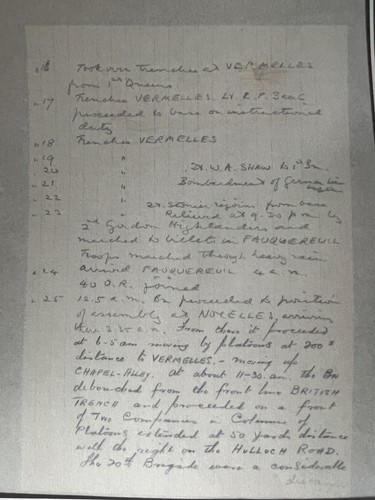 " 16 Took over Trenches at VERMELLES
from 1st Queens
" 17 Trenches VERMELLES. Lt. R.P.
proceeded to base on instructional
duty
" 18 Trenches VERMELLES
" 19 "
" 20 " Lt. W.A. SHAW to 1st
" 21 " Bombardment of German lines
" 22 " 2Lt. rejoins from base
" 23 " Relieved at 9.30 p.m. by
2nd Gordon Highlanders and
marched to billets in FAUQUEREUIL
Troops marched through heavy rain
" 24 arrived FAUQUEREUIL 4 a.m.
40 O.R. joined
" 25 12.5 a.m. Bn proceeded to position
of assembly at NOYELLES, arriving
there 3.35 a.m. From there it proceeded
at 6-5 am moving by platoons at 200x
distance to VERMELLES, - moving up
CHAPEL-ALLEY. At about 11-30. am. the Bn
debouched from the front line BRITISH
TRENCH and proceeded on a front
of Two Companies in Columns of
Platoons extended at 50 yards distance
with the right on the HULLOCH ROAD.
The 20th Brigade were a considerable